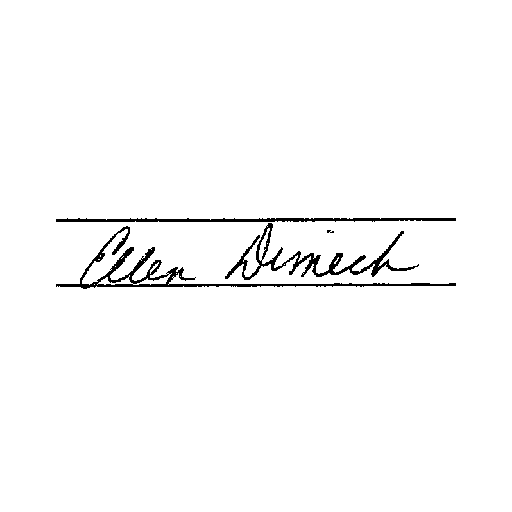 Ellen Dimech